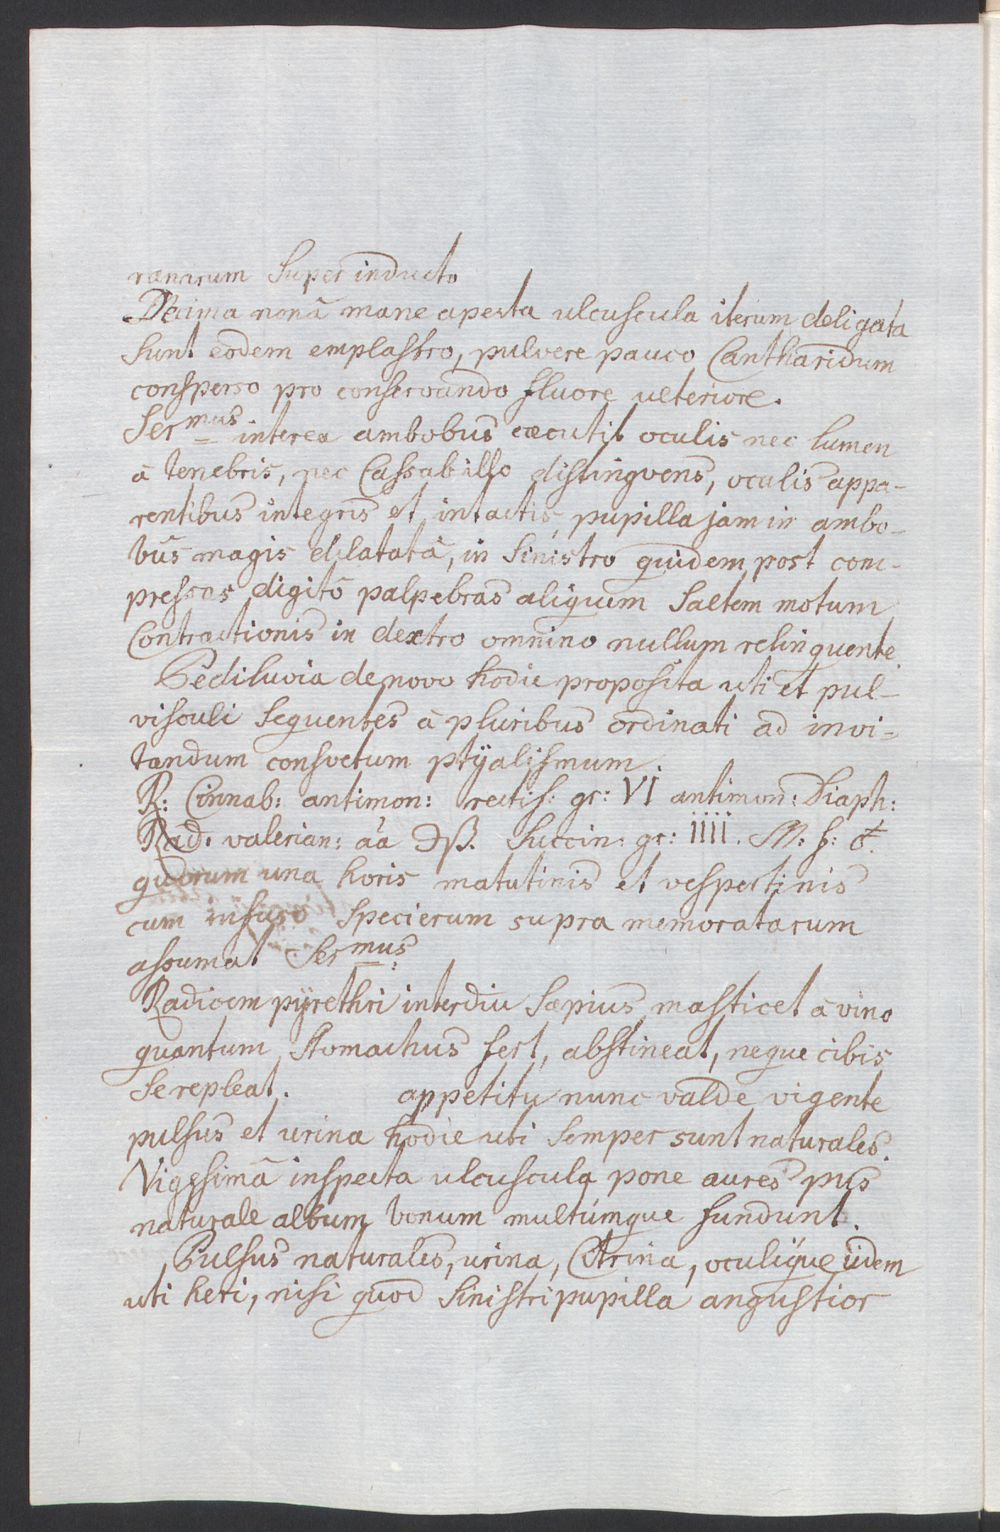 ranarum Super inducto
Decima nonâ mane aperta ulcuscula iterum deligata
sunt eodem emplastro, pulvere pauco Cantharidum
consperso pro conservando fluore ulteriore.
Ser<sup>mus</sup> interea ambobus cæcutit oculis nec lumen
à tenebris, nec Cassabillo distingvens, oculis appa-
rentibus integris et intactis, pupilla jam in ambo-
bus magis dilatatâ, in Sinistro quidem post com-
pressas digitô palpebras aliquem Saltem motum
Contractionis in dextro omnino nullum relinquente.
Pediluvia denovo hodie proposita uti et pul-
visculi sequentes à pluribus ordinati ad invi-
tandum consvetum ptÿalismum.
R: Cinnab: antimon: rectif: gr: VI antimon: Diaph:
Rad. valerian: aâ ℈ß. Succin: gr: IIII. M: f: ☿.
quorum una horis matutinis et vespertinis
cum infuso Specierum supra memoratarum
assumat Ser<sup>mus</sup>:
Radicem pÿrethri interdiu Sæpius masticet à vino
quantum Stomachus fert, abstineat, neque cibis
se repleat. appetitu nunc valde vigente
pulsus et urina hodie uti Semper sunt naturales.
Vigesimâ inspecta ulcuscula pone aures pus
naturale album bonum multúmque fundunt.
Pulsus naturales, urina, Citrina, oculíque iidem
uti heri, nisi quod Sinistri pupilla angustior